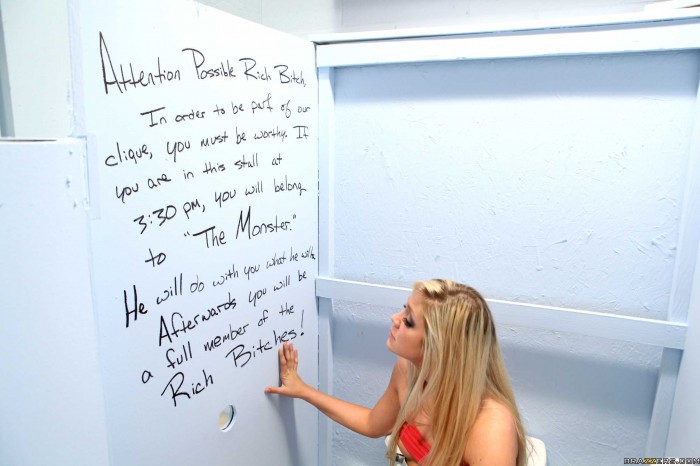 Attention Possible Rich Bitch,
In order to be part of our
clique, you must be worthy. If
you are in this stall at
3:30 pm, you will belong
to "The Monster."
He will do with you what he will.
Afterwards you will be
a full member of the
Rich Bitches!
BRAZZERS.COM